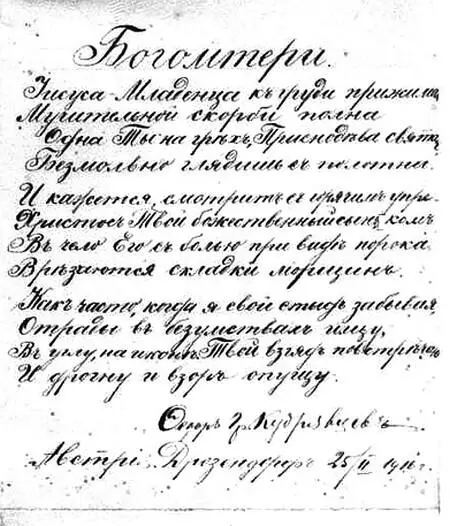 Богомтери.
Іисуса Младенца къ груди прижимая
Мучительной скорби полна
Одна Ты на грѣхъ, Приснодѣва святая
Безмолвно глядишь съ полотна.
И кажется, смотритъ съ горячимъ
Христосъ Твой божественный сынъ,
Въ чело Его съ болью при видѣ порока
Врѣзаются складки морщинъ.
Какъ часто, когда я свой стыдъ забывая,
Отрады въ безумствахъ ищу,
Въ углу, на иконѣ Твой взглядъ повстрѣчаю
И дрогну и взоръ опущу.
Федоръ Г. Кудрявцевъ
Австрія. Дрозендорфъ 25/II 1916 г.